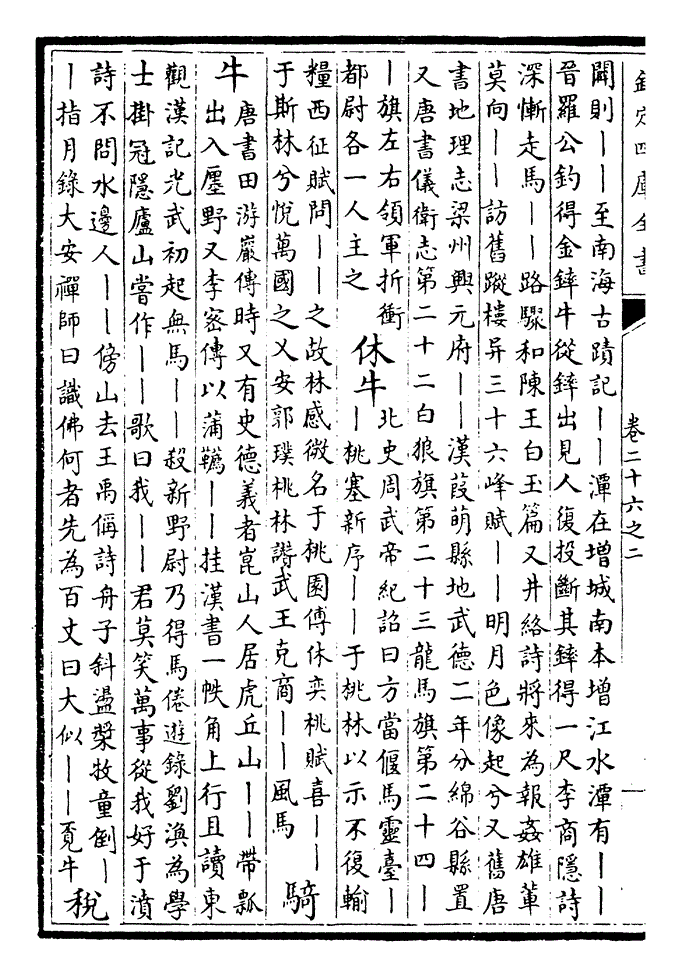 欽定四庫全書
卷二十六之二
闢則｜｜至南海古蹟記｜｜潭在增城南本增江水潭有｜｜
晉羅公釣得金鏁牛從鏁出見人復投斷其鏁得一尺李商隱詩
深慚走馬｜｜路驟和陳王白玉篇又井絡詩將來為報姦雄輩
莫向｜｜訪舊蹤樓异三十六峰賦｜｜明月色像起兮又舊唐
書地理志梁州興元府｜｜漢葭萌縣地武德二年分綿谷縣置
又唐書儀衛志第二十二白狼旗第二十三龍馬旗第二十四｜
｜旗左右領軍折衝
都尉各一人主之
休牛
北史周武帝紀詔曰方當偃馬靈臺｜
｜桃塞新序｜｜于桃林以示不復輸
糧西征賦問｜｜之故林感微名于桃園傅休奕桃賦喜｜｜
于斯林兮悅萬國之乂安郭璞桃林讚武王克商｜｜風馬
騎
牛
唐書田游巖傳時又有史德義者崑山人居虎丘山｜｜帶瓢
出入廛野又李密傳以蒲韉｜｜挂漢書一帙角上行且讀東
觀漢記光武初起無馬｜｜殺新野尉乃得馬倦遊錄劉渙為學
士掛冠隱廬山嘗作｜｜歌曰我｜｜君莫笑萬事從我好于濆
詩不問水邊人｜｜傍山去王禹偁詩舟子斜盪槳牧童倒｜
｜指月錄大安禪師曰識佛何者先為百丈曰大似｜｜覓牛
税